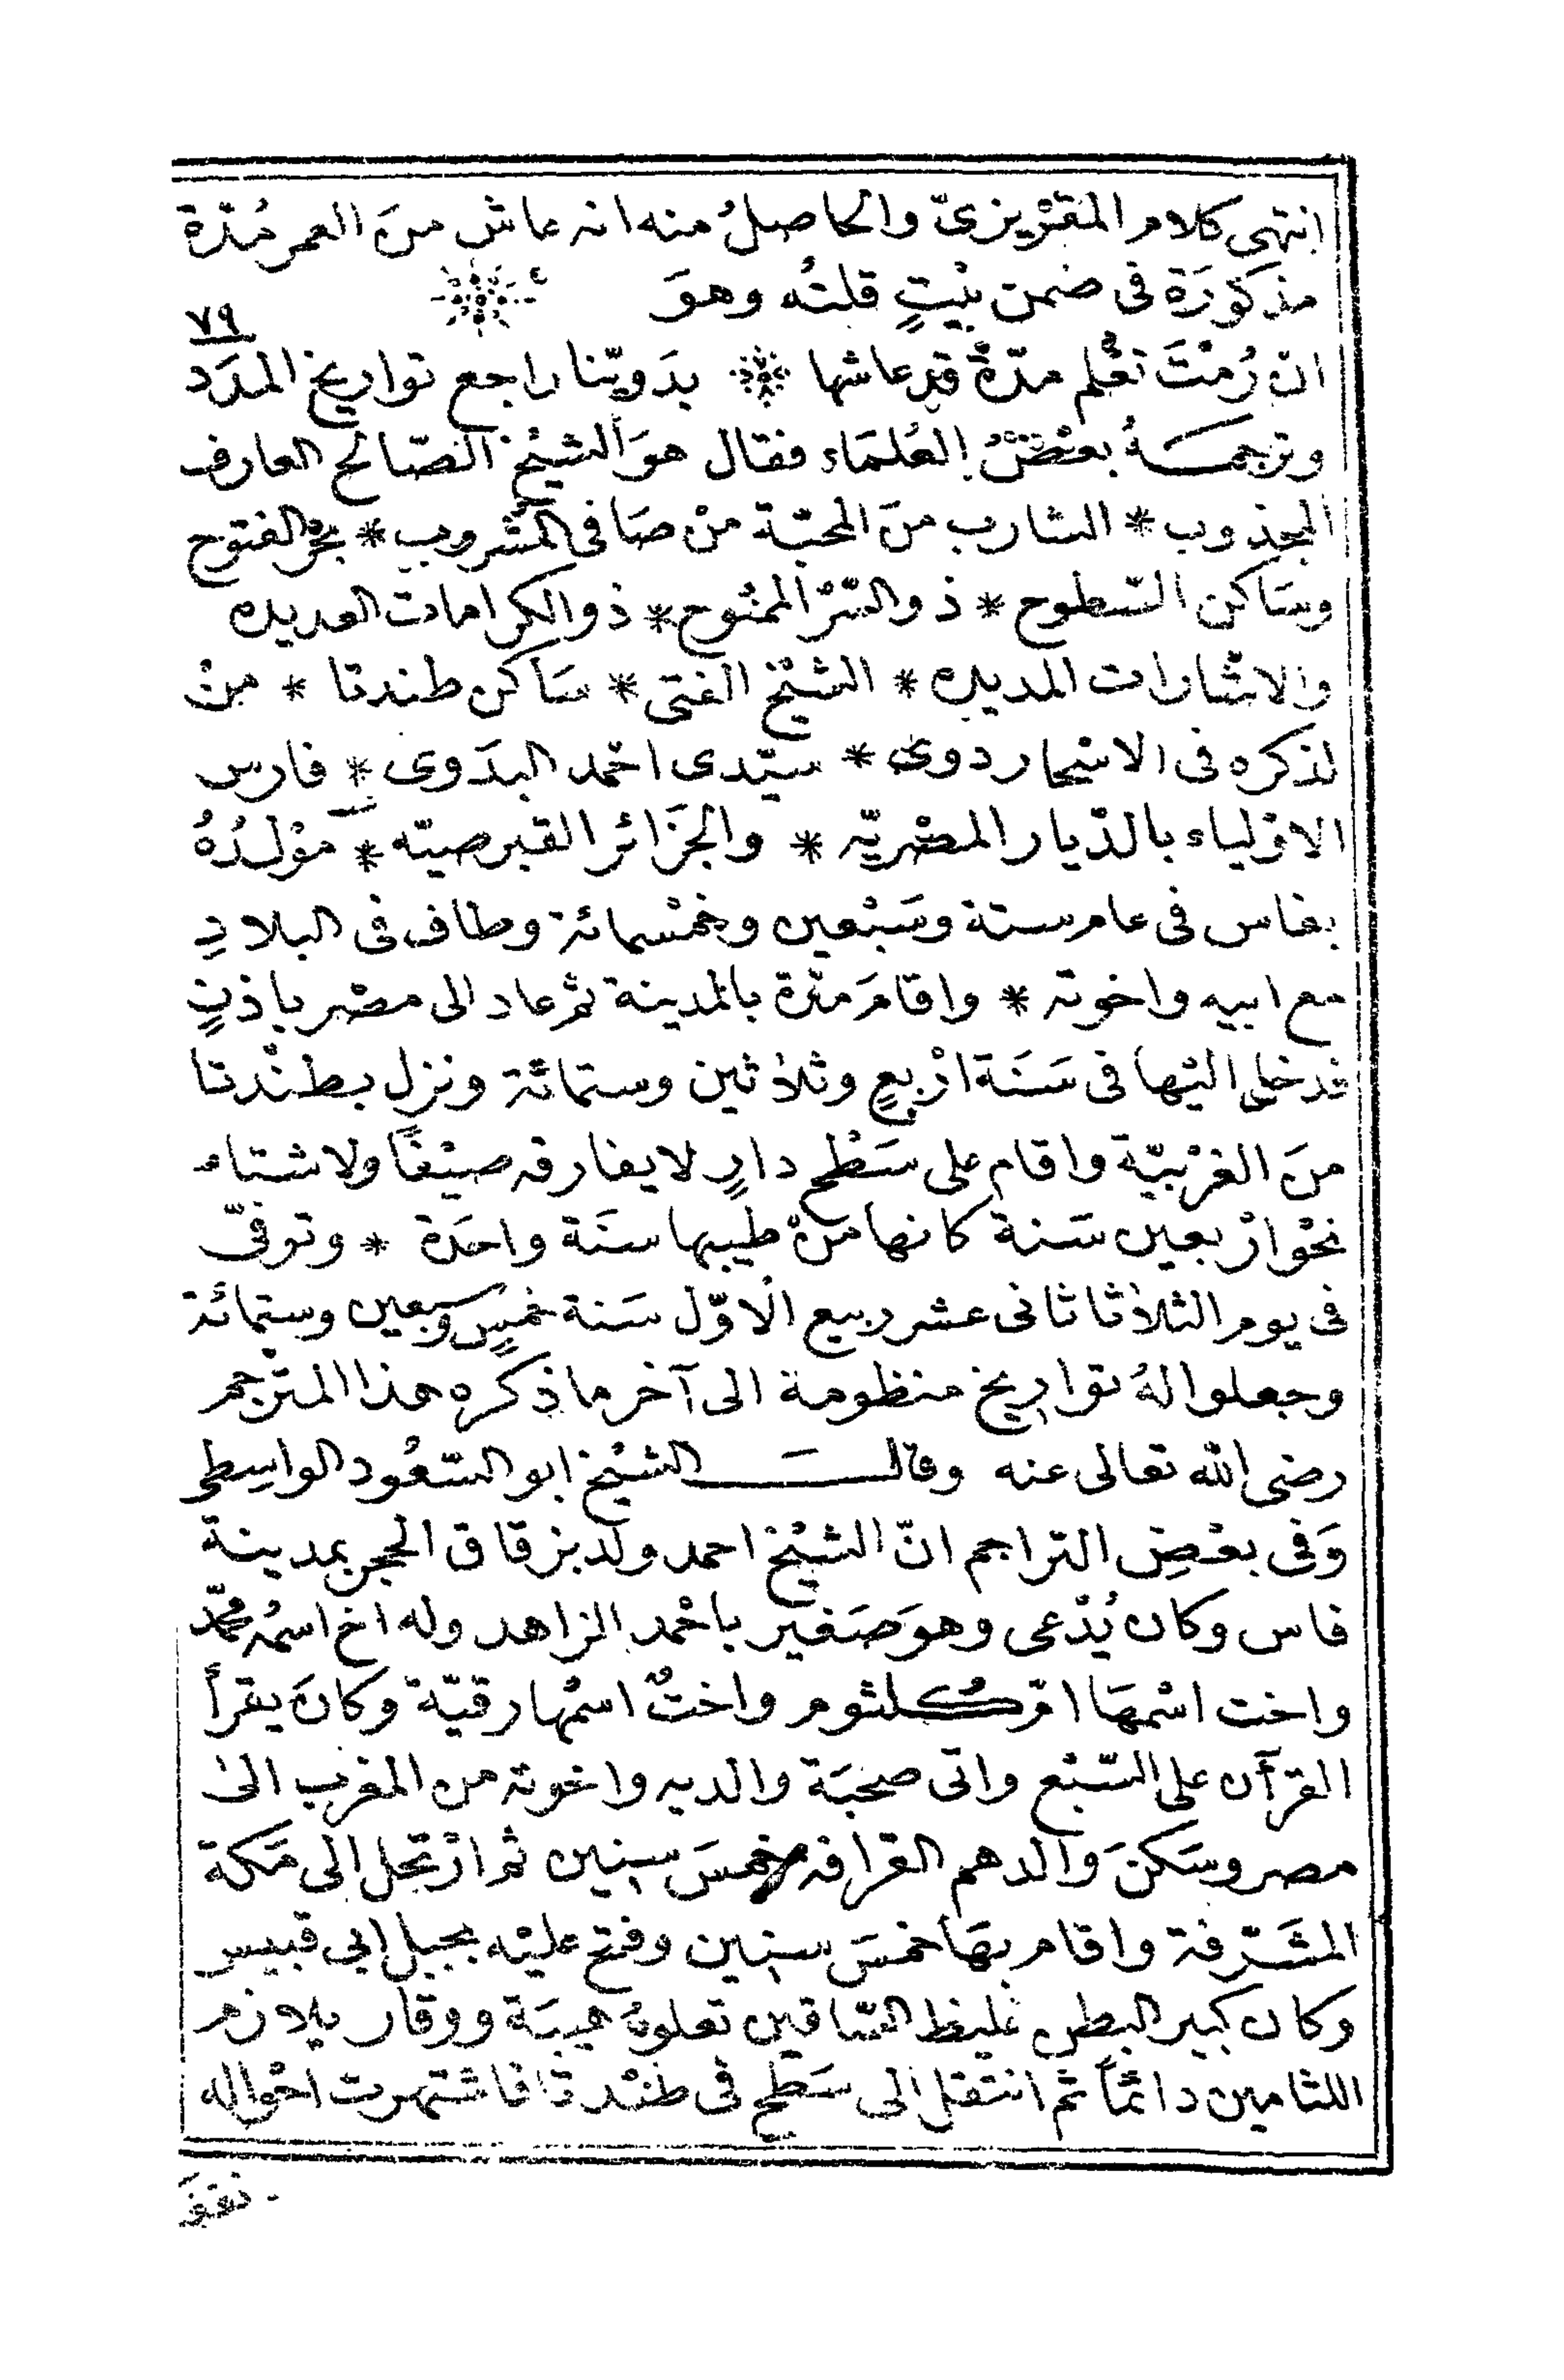 انتهى كلام المقْريزىّ والحاصلُ منه انه عاش منَ العمر مُدّة
مذكوُرَة فى ضمن بيْتٍ قلتُه وهوَ
٧٩
انْ رُمْتَ تعْلم مدّةً قد عاشها * بدَويّنا راجع تواريخ المدَد
وترجمَهُ بعْضُ العُلمَاء فقال هوَ الشيْخ الصّالح العارف
المجذوب * الشارب منَ المحبّة منْ صَافى المشْروب * بحْر الفتوح
وسَاكن السّطوح * ذو السّرّ الممنُوح * ذو الكرامات العديده
والاشارات المديده * الشيْخ الفتى * سَاكن طندتا * منْ
لذكره فى الاسْحار دوىّ * سيّدى احْمد البدَوى * فارس
الاوْلياء بالدّيار المصْريّه * والجزَائر القبرصيّه * موْلدُهُ
بفاس فى عام ستة وسَبْعين وخمْسمائة وطاف فى البلادِ
مع ابيه واخوته * واقامَ مدّة بالمدينة ثم عاد الى مصْر باذنٍ
فدخل اليْها فى سَنَة ارْبعٍ وثلاثين وستمائة ونزل بطنْدتا
منَ الغرْبيّة واقام على سَطْح دارٍ لا يفارقه صيْفًا ولا شتاء
نحْوارْبعين سَنة كانها منْ طيبها سنَة واحَدة * وتوفىّ
فى يوم الثلاثا ثانى عشر ربيع الاوّل سَنة خمسٍ وسبعين وستمائة
وجعلوا لهُ تواريخ منظومة الى آخر ما ذكره هذا المترجم
رضى الله تعالى عنه وقالَ الشيْخ ابو السّعُود الواسِطى
وَفى بعْضِ التراجم انّ الشيْخ احمد ولد بزقاق الحجر بمدينة
فاس وكان يُدْعى وهوَ صَغير باحْمد الزاهد وله اخ اسمُه محمّد
واخت اسْمهَا امّ كُلثوم واختٌ اسْمها رقيّة وكانَ يقرأ
القرآن على السّبْع واتى صحبَة والديه واخوته من المغرب الى
مصر وسَكنَ والدهم القرافه خمسَ سنين ثم ارْتحل الى مَكة
المشَرّفة واقام بهَا خمسَ سنين وفتح عليْه بجبل ابى قبيس
وكان كبير البطن غليظ السّاقين تعلوهُ هيبَة ووقار يلازم
اللثامين دائماً ثم انتقل الى سَطْح فى طنْدتا فاشتهرت احْواله